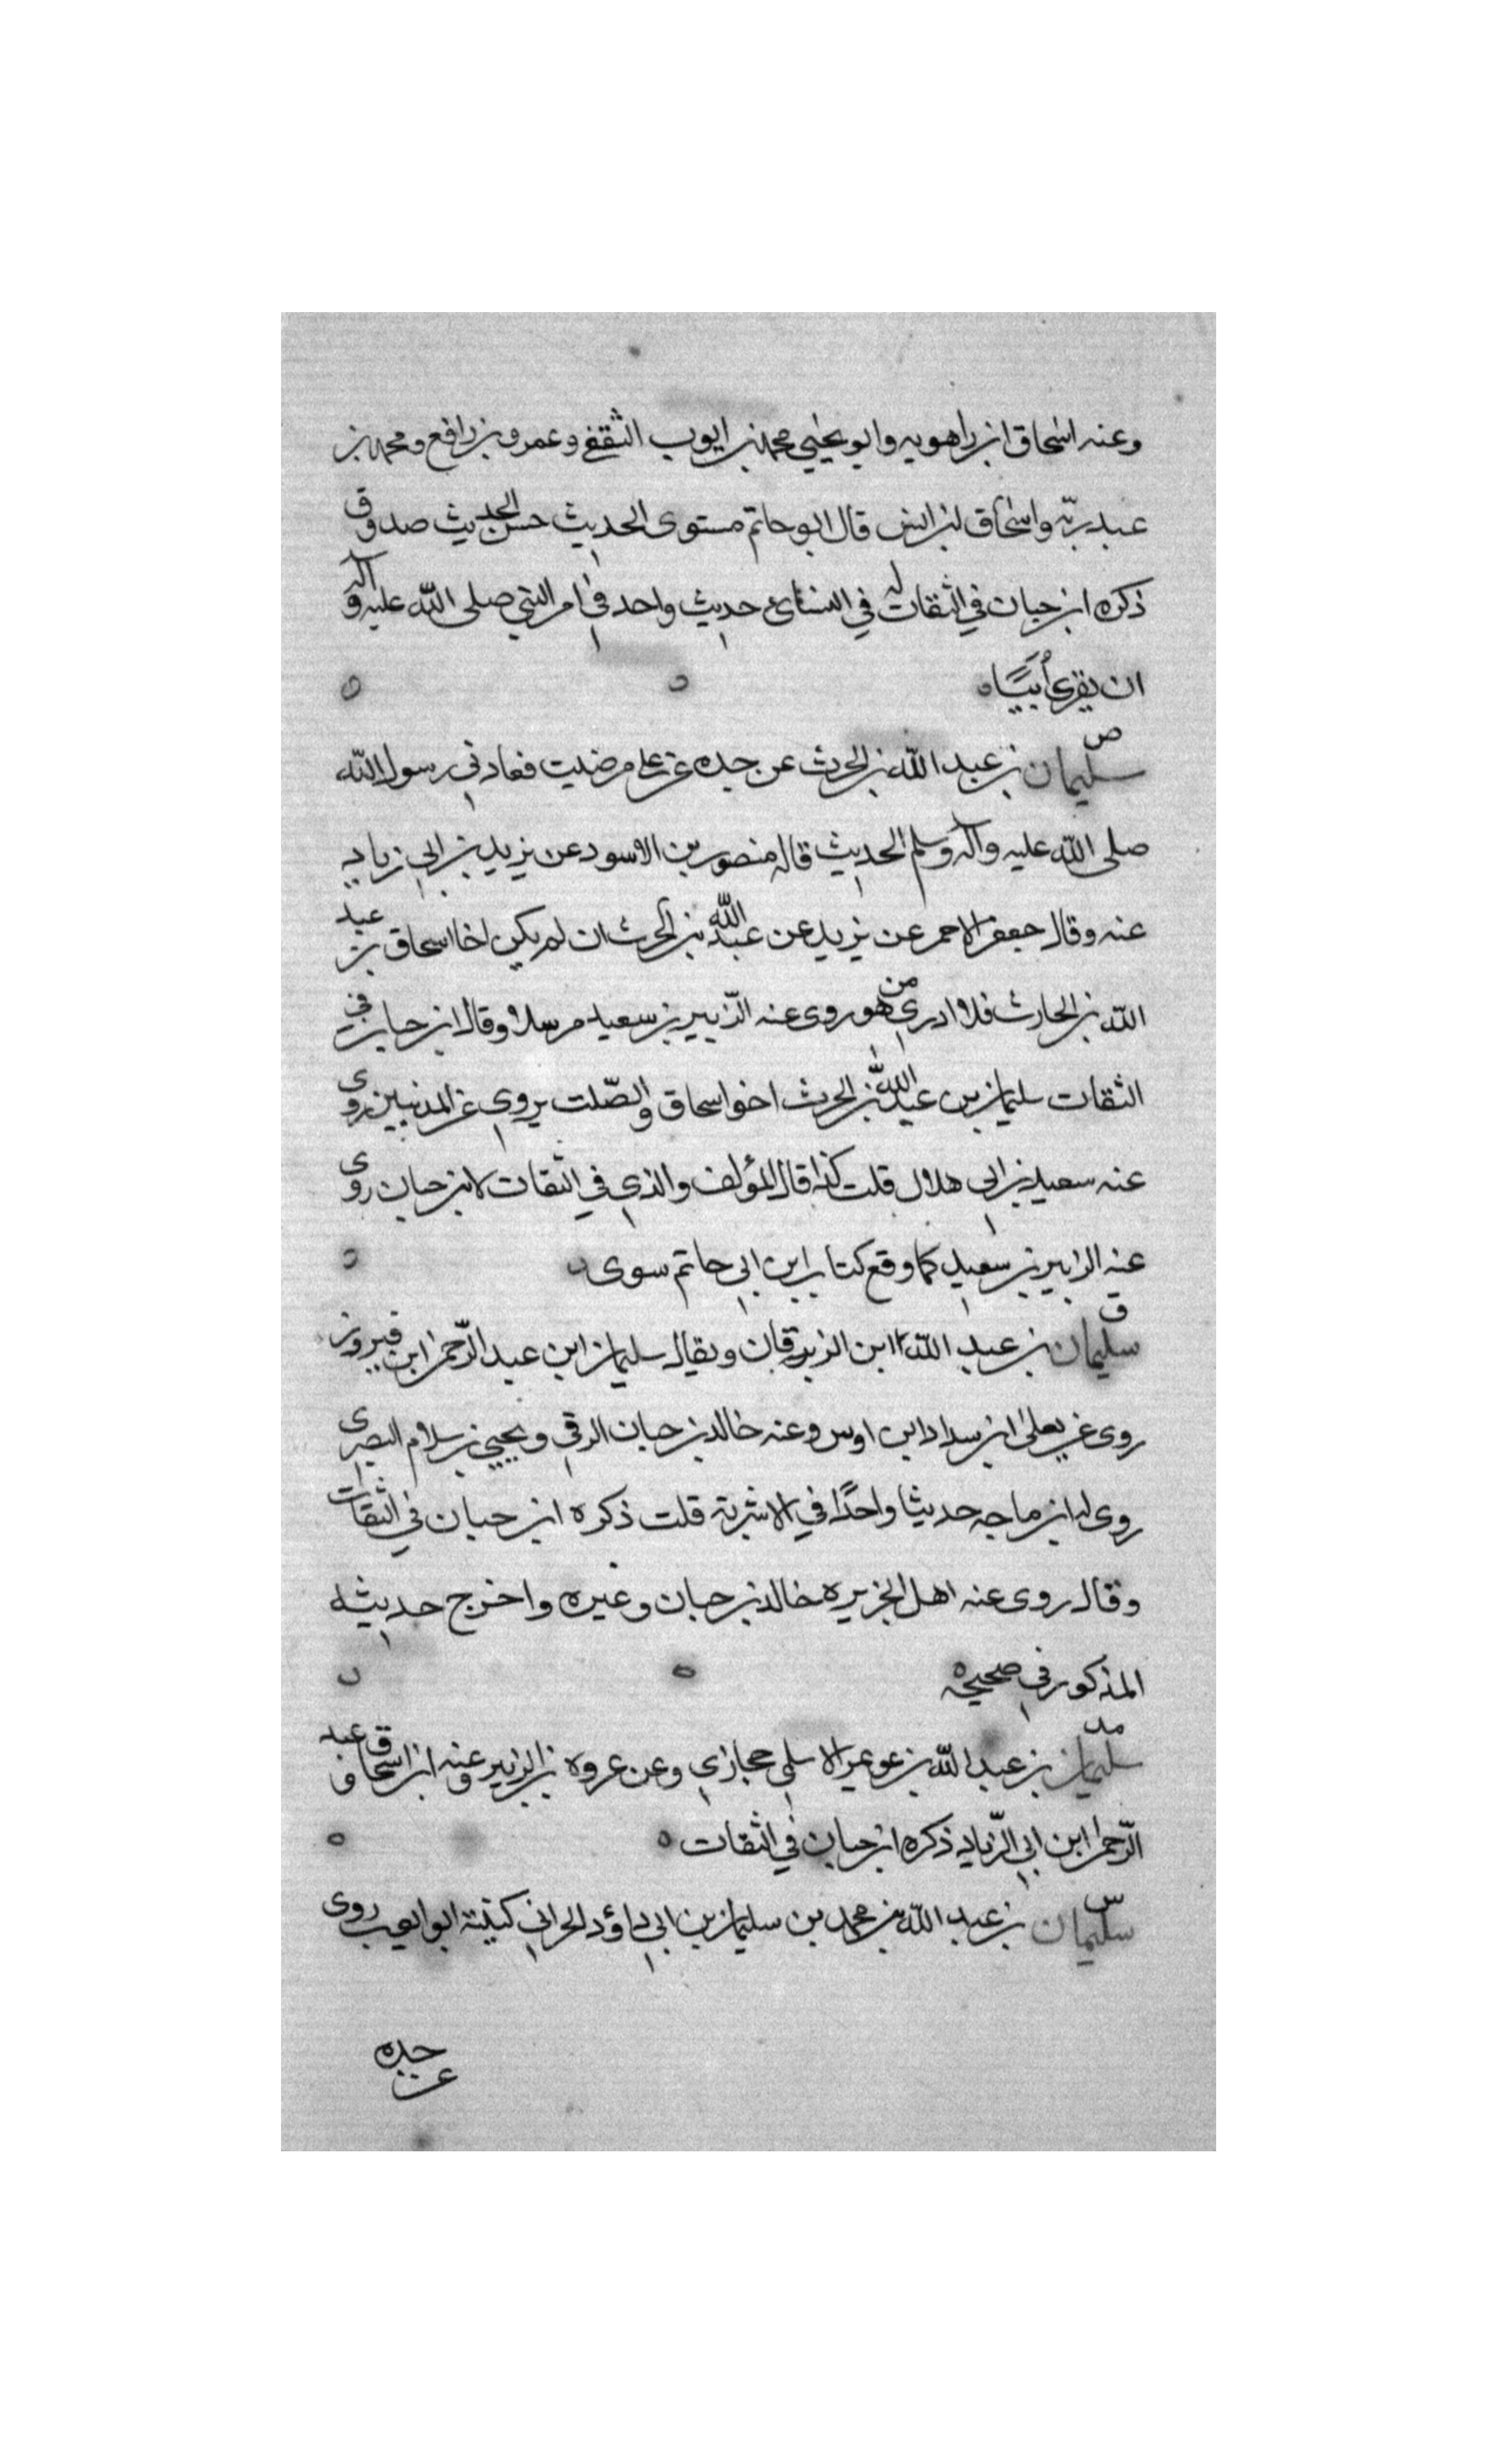 وعنه اسحاق ابن راهويه وابو يحيي محمد بن ايوب الثقفي وعمرو بن رافع ومحمد بن
عبد ربه واسحاق ابن انس قال ابو حاتم مستوى الحديث حسن الحديث صدوق
ذكره ابن حبان في الثقات له في النسائي حديث واحد في امر النبي صلى الله عليه وآله
ان يقرئ أبيًّا
ص
سليمان بن عبد الله بن الحرث عن جده عن علي مرضت فعادني رسول الله
صلى الله عليه وآله وسلم الحديث قاله منصور بن الاسود عن يزيد بن ابي زياد
عنه وقال جعفر الاحمر عن يزيد عن عبد الله بن الحرث ان لم يكن اخا اسحاق بن عبد
الله بن الحارث فلا ادري من هو روى عنه الزبير بن سعيد مرسلا وقال ابن حبان في
الثقات سليمان بن عبد الله بن الحرث اخو اسحاق والصلت يروي عن المدنيين روى
عنه سعيد بن ابي هلال قلت كذا قال المؤلف والذي في الثقات لابن حبان روى
عنه الزبير بن سعيد كما وقع كتاب ابن ابي حاتم سوى
ق
سليمان بن عبد الله ابن الزبرقان ويقال سليمان ابن عبد الرحمن ابن فيروز
روى عن يعلى ابن سداد ابن اوس وعنه خالد بن حبان الرقي ويحيي بن سلام البصرى
روى له ابن ماجه حديثا واحدًا في الاشربة قلت ذكره ابن حبان في الثقات
وقال روى عنه اهل الجزيره خالد بن حبان وغيره واخرج حديثه
المذكور في صحيحه
مد
سليمان بن عبد الله بن عويمر الاسلمي حجازي وعن عروه بن الزبير وعنه ابن اسحاق وعبد
الرحمن ابن ابي الزناد ذكره ابن حبان في الثقات
س
سليمان بن عبد الله بن محمد بن سليمان بن ابي داؤد الحراني كنيته ابو ايوب روى
عن جده